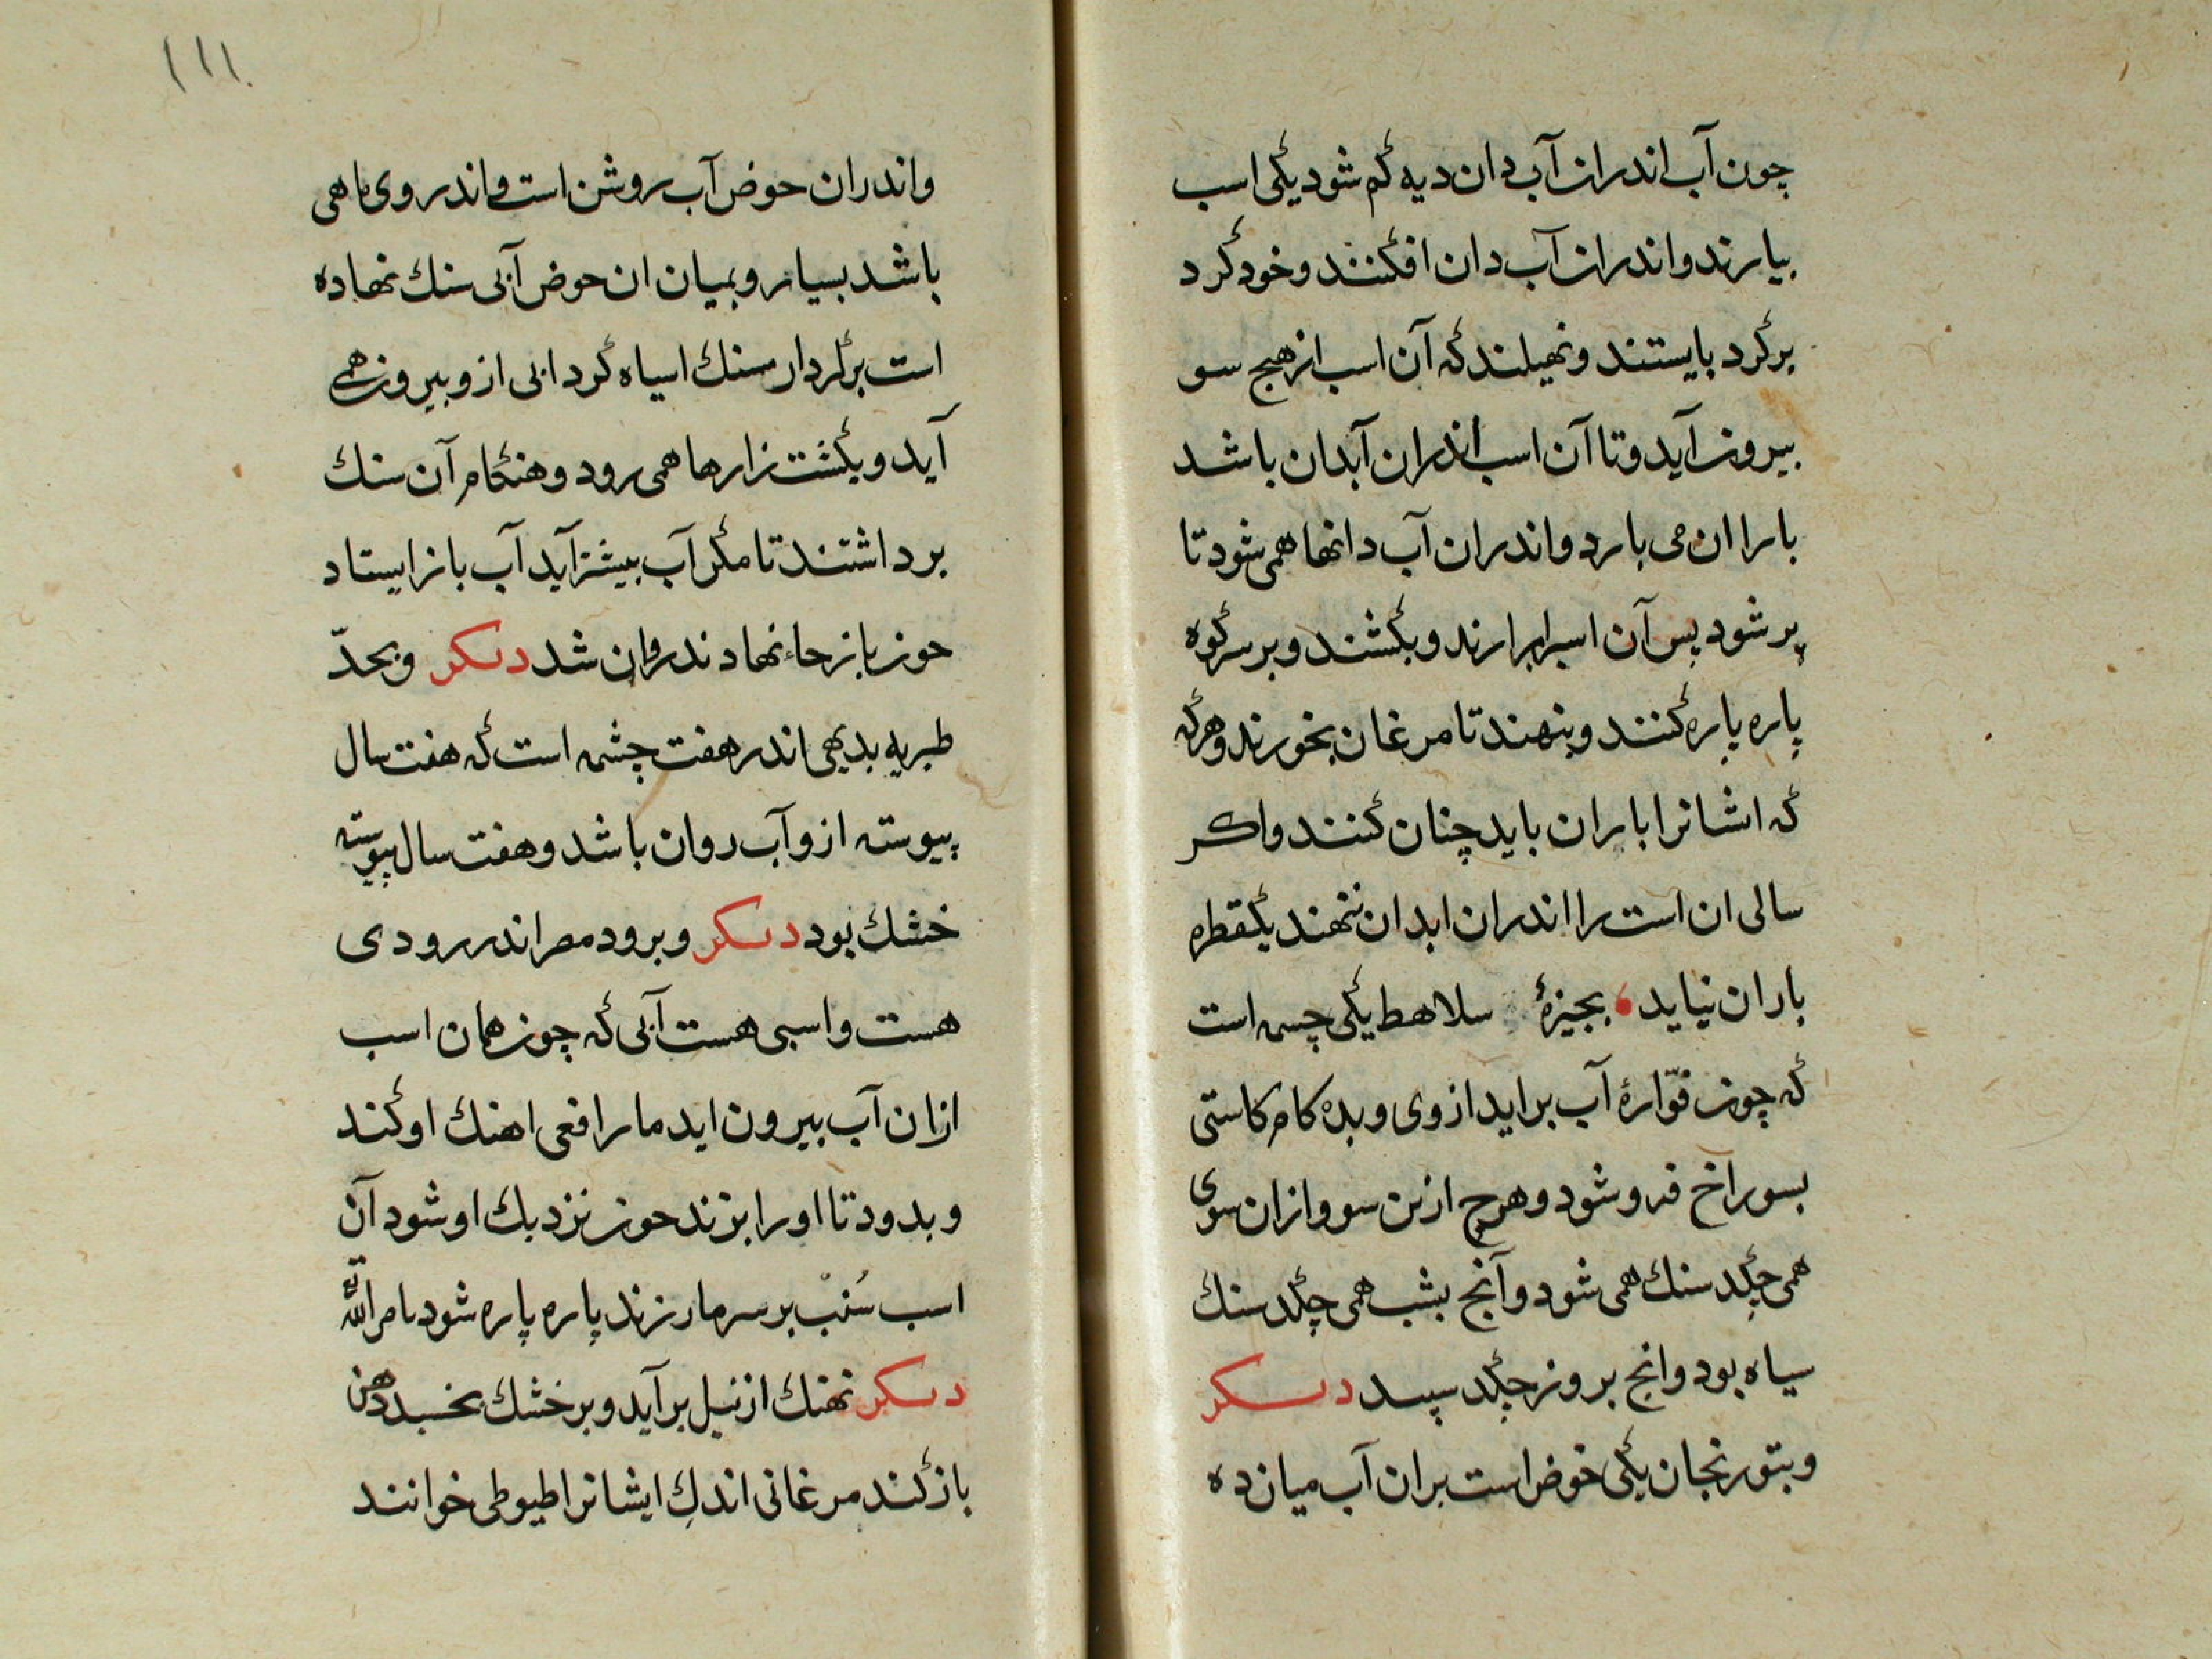 چون آب اندران آب دان دیه کم شود یکی اسب
بیارند واندران آب دان افکنند وخود کرد
برکرد بایستند ونهیلند که آن اسب از هیچ سو
بیرون آید وتا آن اسب اندران آبدان باشد
بارا ان می بارد واندران آب دانها همی شود تا
پر شود پس آن اسبرا برارند وبکشند وبر سرکوه
پاره پاره کنند وبنهند تا مرغان بخورند وهرکه
که اشانرا باران باید چنان کنند واکر
سالی ان است را اندران ابدان ننهند یکقطره
باران نیاید بجیزهٔ سلاهط یکی چسمه است
که چون فوّارهٔ آب براید از وی وبده کام کاستی
بسوراخ فرو شود وهرچ ازین سو وازان سوی
همی چکد سنك همی شود وآنچ بشب همی چکد سنك
سیاه بود وانچ بروز چکد سپید دیکر
وبتورنجان یکی خوض است بران آب میان ده
۱۱۱
واندران حوض آب روشن است واندر وی ماهی
باشد بسیار وبمیان ان حوض آبی سنك نهاده
است برکردار سنك اسیاه کرد ابی ازو بیرون همی
آید وبکشت زارها همی رود وهنکام آن سنك
برداشتند تا مکر آب بیشتر آید آب باز ایستاد
چون باز جاء نهادند روان شد دیکر وبحدّ
طبریه بدیهی اندر هفت چشمه است که هفت سال
پیوسته ازو آب روان باشد وهفت سال پیوسته
خشك بود دیکر وبرود مصر اندر رودی
هست واسبی هست آبی که چون همان اسب
ازان آب بیرون اید مار افعی اهنك او کند
وبدود تا اورا بزند چون نزدیك او شود آن
اسب سُنب بر سر مار زند پاره پاره شود بامر الله
دیکر نهنك از نیل برآید وبر خشك بخسبد دهن
باز کند مرغانی اندك ایشانرا طیوطی خوانند